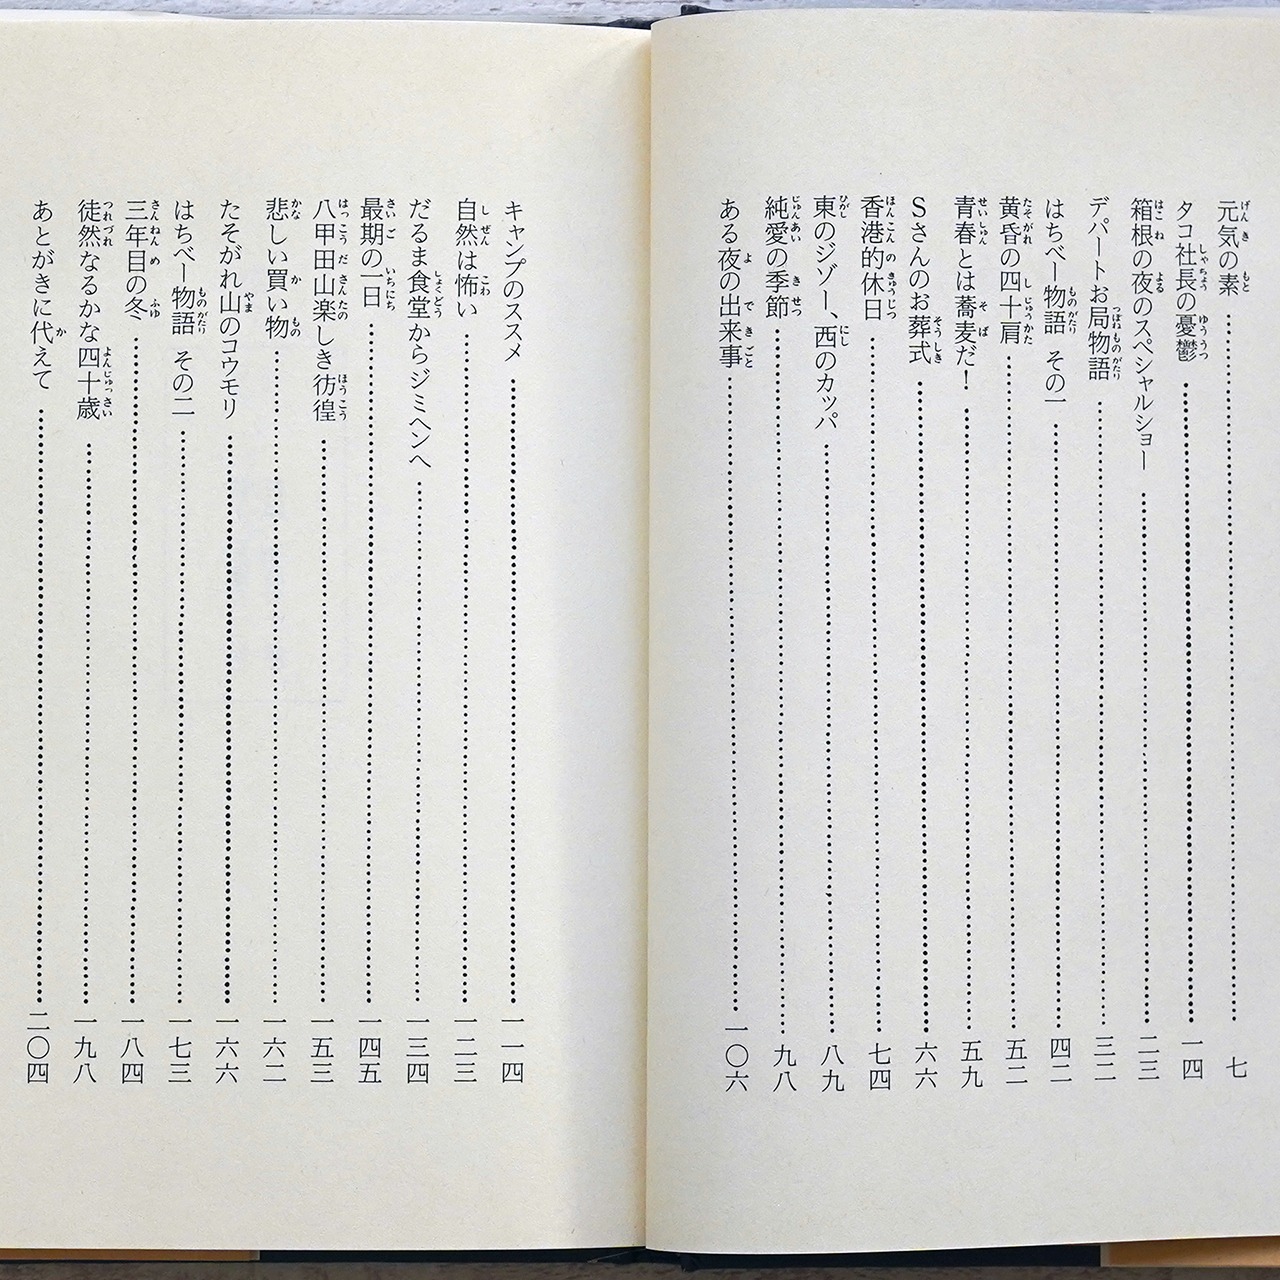 元気の素……七
タコ社長の憂鬱……一四
箱根の夜のスペシャルショー……二三
デパートお局物語……三二
はちべー物語 その一……四二
黄昏の四十肩……五二
青春とは蕎麦だ！……五九
Ｓさんのお葬式……六六
香港的休日……七四
東のジゾー、西のカッパ……八九
純愛の季節……九八
ある夜の出来事……一〇六
キャンプのススメ……一一四
自然は怖い……一二三
だるま食堂からジミヘンへ……一三四
最期の一日……一四五
八甲田山楽しき彷徨……一五三
悲しい買い物……一六二
たそがれ山のコウモリ……一六六
はちべー物語 その二……一七三
三年目の冬……一八四
徒然なるかな四十歳……一九八
あとがきに代えて……二〇四